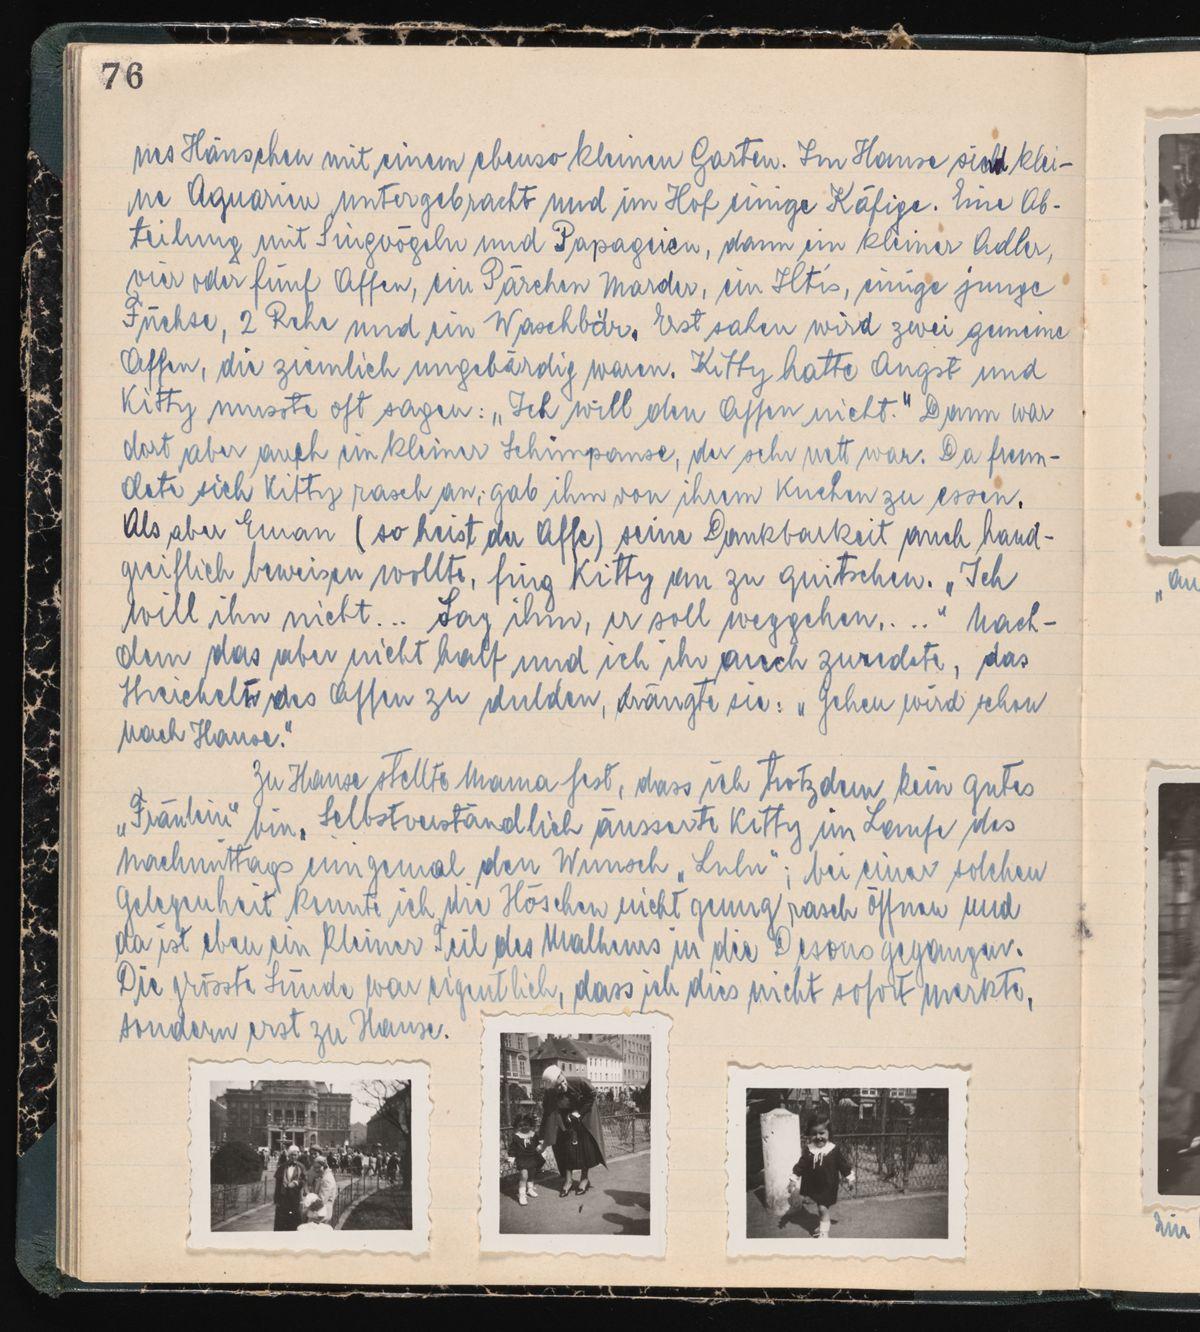 76
nes Häuschen mit einem ebenso kleinen Garten. Im Hause sind klei-
ne Aquarien untergebracht und im Hof einige Käfige. Eine Ab-
teilung mit Singvögeln und Papageien, dann ein kleiner Adler,
vier oder fünf Affen, ein Pärchen Marder, ein Iltis, einige junge
Füchse, 2 Rehe und ein Waschbär. Erst sahen wird zwei gemeine
Affen, die ziemlich ungebärdig waren. Kitty hatte Angst und
Kitty musste oft sagen: „Ich will den Affen nicht." Dann war
dort aber auch ein kleiner Schimpanse, der sehr nett war. Da freun-
dete sich Kitty rasch an, gab ihm von ihrem Kuchen zu essen.
Als aber (so heist der Affe) seine Dankbarkeit auch hand-
greiflich beweisen wollte, fing Kitty an zu quitschen. „Ich
will ihn nicht... Sag ihm, er soll weggehen....." Nach-
dem das aber nicht half und ich ihr auch zuredete, das
Streicheln des Affen zu dulden, drängte sie: „Gehen wird schon
nach Hause."
Zu Hause stellte Mama fest, dass ich trotzdem kein gutes
„Fräulein" bin. Selbstverständlich äusserte Kitty im Laufe des
Nachmittags einigemal den Wunsch „Lulu"; bei einer solchen
Gelegenheit konnte ich die Höschen nicht genug rasch öffnen und
da ist eben ein kleiner Teil des Malheurs in die Desous gegangen.
Die grösste Sünde war eigentlich, dass ich dies nicht sofort merkte,
sondern erst zu Hause.
Ein